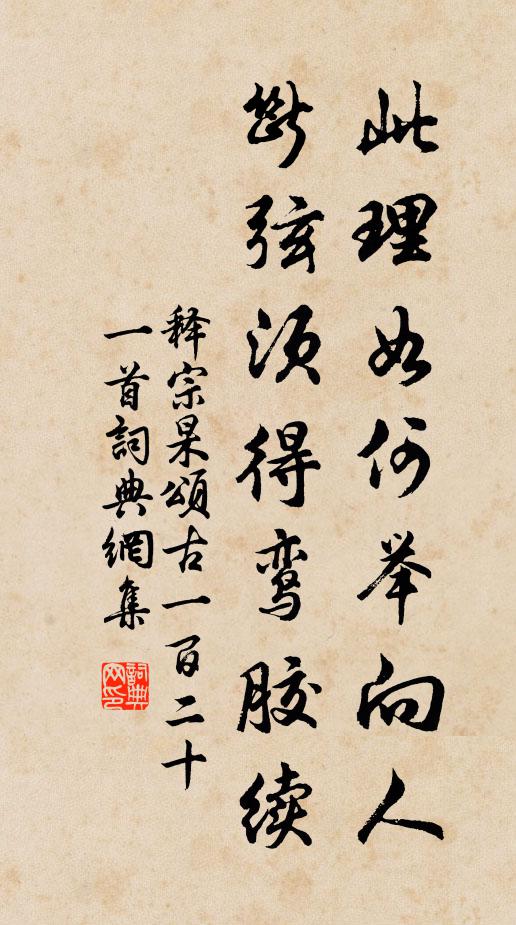 此理如何举向人
断弦须得鸾胶续
释宗杲颂古一百二十
一首詞典網集
詞典
网印